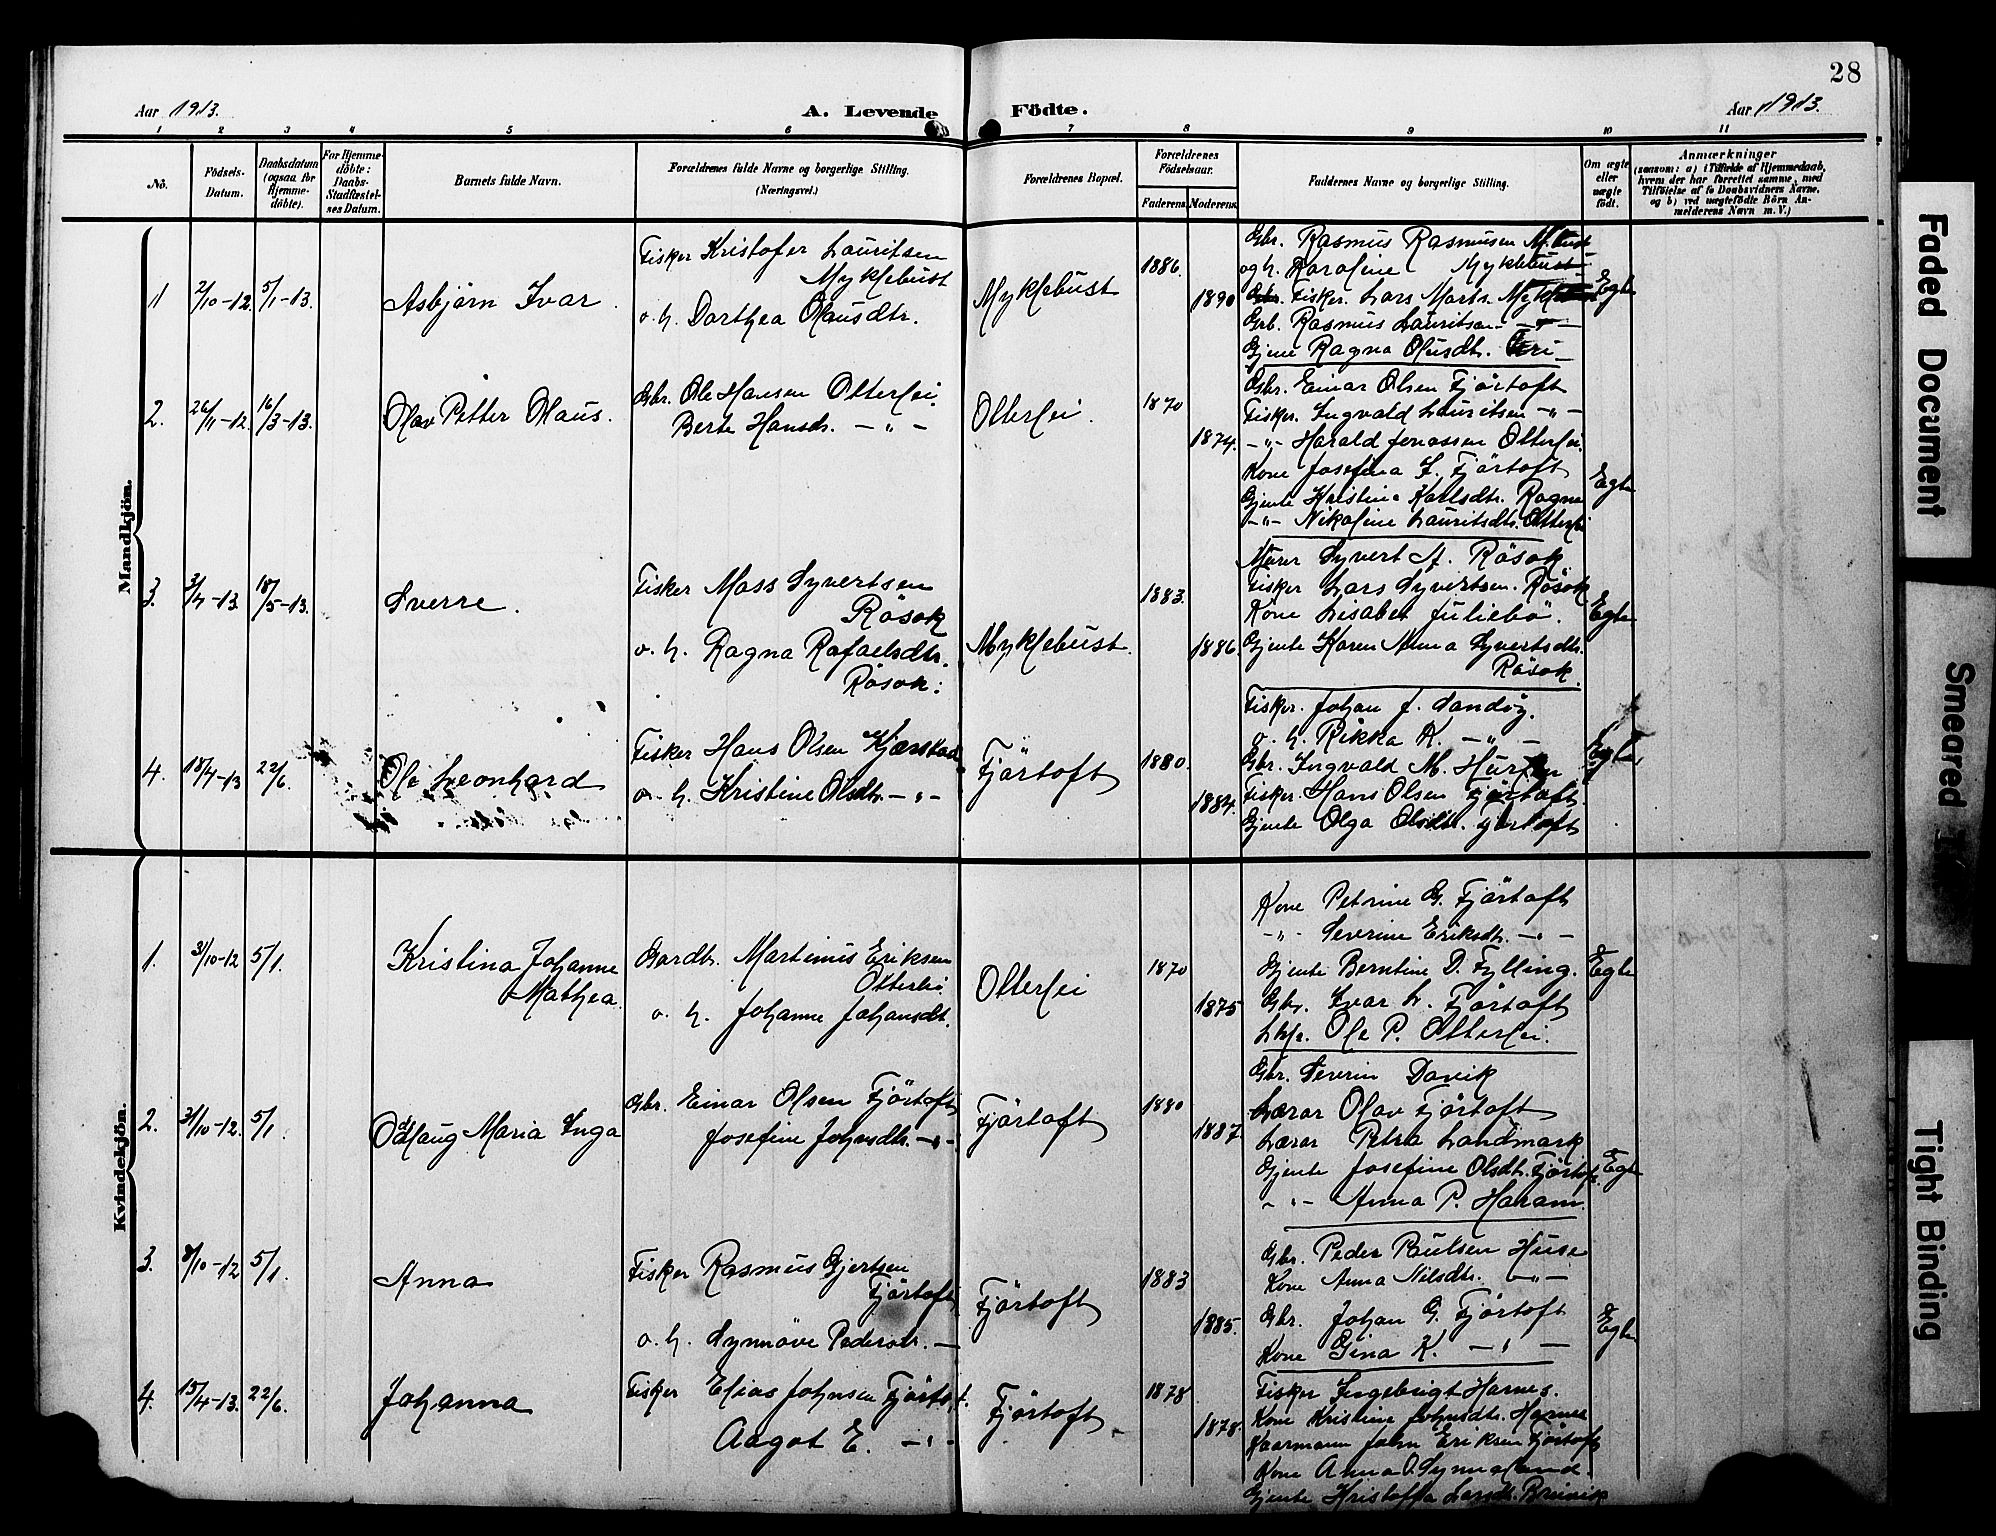 28
Aar 1913.
A. Levende Födte.
Aar 1913.
1 2 3 4 5 6 7 8 9 10 11
No.
Födsels-Datum.
Daabsdatum (ogsaa for Hjemme-döbte).
For Hjemme-döbte: Daabs-Stadfæstel-ses Datum.
Barnets fulde Navn.
Forældrenes fulde Navne og borgerlige Stilling. (Næringsvei.)
Forældrenes Bopæl.
Forældrenes Födselsaar.
Faderens. Moderens.
Faddernes Navne og borgerlige Stilling.
Om ægte eller uægte födt.
Anmærkninger
(saasom: a) i Tilfælde af Hjemmedaab,
hvem der har forrettet samme, med
Tilföielse af to Daabsvidners Navne.
og b) ved uægtefödte Börn An-
melderens Navn m. V.)
Mandkjön.
1 2/10-12. 5/1-13. Asbjörn Ivar
Fisker Kristofer Lauritsen
Myklebust
o. h. Dorthea Olausdtr.
Myklebust
1886.
1890
Gbr. Rasmus Rasmusen M.bust
og h. Karoline Myklebust
Gbr. Fisker. Lars Marts. Myklebust
Grb. Rasmus Lauritsen -"-
Gjene Ragna Olusdt.
Egte
2. 26/11-12. 16/3-13. Olav Petter Olaus.
Gbr. Ole Hansen Otterlei.
Berte Hansdr. -"-
Otterlei.
1870
1874.
Gbr. Einar Olsen Fjörtoft
Fisker. Ingvald Lauritsen -"-
-"- Harald Jonassen Otterlei.
Kone Josefina I. Fjörtoft
Gjente Kristine Karlsdtr. Ragna
-"- Nikoline Lauritsdtr. Otterlei
Egte
3. 3/4-13. 18/5-13. Sverre.
Fisker Mass Syvertsen
Rösok
o. h. Ragna Rafaelsdtr.
Rösok.
Myklebust.
1883.
1886
Murer Syvert A. Rösok
Fisker Lars Syvertsen. Rösok
Kone Lisabet Juliebö.
Gjente Karen Anna Syvertsdtr.
Rösok.
Egte
4. 18/4-13 22/6. Ole Leonhard
Fisker Hans Olsen Kjærstad
o. h. Kristine Olsdtr. -"-
Fjörtoft
1880.
1884.
Fisker. Johan J. Sandöy.
o. h. Rikka K. -"-
Gbr. Ingvald M.
Fisker. Hans Olsen Fjörtoft.
Gjente Olga Olsdtr. Fjörtoft
Egte
Kvindekjön.
1. 31/10-12 5/1. Kristina Johanne
Mathea.
Gardbr. Martinus Eriksen
Otterlei
o. h. Johanne Johansdt.
Otterlei
1870
1875
Kone Petrine G. Fjörtoft
-"- Severine Eriksdtr. -"-
Gjente Berntine D. Fylling.
Gbr. Ivar L. Fjörtoft
Ole P. Otterlei.
Egte
2. 31/10-12. 5/1. Oddlaug Maria Inga
Gbr. Einar Olsen Fjörtoft
Josefine Johnsdtr. -"-
Fjörtoft
1880
1887.
Gbr. Severin Davik
Lærer Olav Fjörtoft
Lærer Petra Landmark
Gjente Josefine Olsdt. Fjörtoft.
-"- Anna P. Haram.
Egte
3. 8/10-12 5/1. Anna
Fisker Rasmus Gjertsen
Fjörtoft
o. h. Synnöve Pedersdtr. -
Fjörtoft
1883
1885.
Gbr. Peder Paulsen Huse
Kone Anna Nilsdtr. -"-
Gbr. Johan G. Fjörtoft
Kone Gina K. -"-
Egte
4. 15/4-13. 22/6. Johanna
Fisker Elias Johnsen Fjörtoft.
Aagot E. -"-
Fjörtoft.
1878
1878.
Fisker Ingebrigt Harnes.
Kone Kristine Johnsdtr. Harnes
Kaarmann John Eriksen Fjörtoft
Kone Anna O. Synnaland.
Gjente Kristoffa Larsdt. Breivik
Faded Document
Smeared
Tight Binding